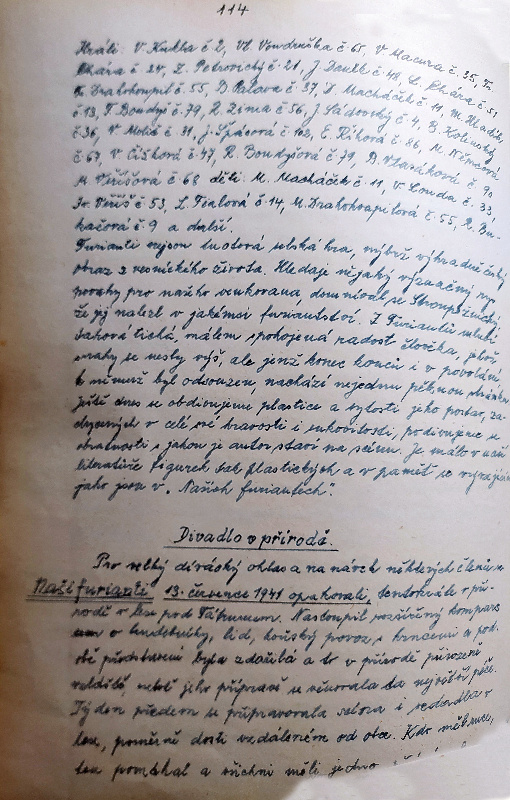 114
Hráli: V. Kukla č. 2, Vl. Vondruška č. 65, V. Macura č. 35, Fr.
Chára č. 24, Z. Petrovický č. 21, J. Daněk č. 48, L. Chára č. 51
K. Drahokoupil č. 55, B. Palava č. 37, J. Macháček č. 11, M. Hladík
č. 13, F. Boudyš č. 79, R. Zima č. 56, J. Sádovský č. 4, B. Kolínský
č. 36, V. Moliš č. 31, J. Špásová č. 102, E. Říhová č. 86, M. Němcová
č. 67, V. Čišková č. 47, R. Boudyšová č. 79, B. Vlasáková č. 90
M. Veříšová č. 68 děti: M. Macháček č. 11, V. Louda č. 33,
Jar. Veříš č. 53, L. Fialová č. 14, M. Drahokoupilová č. 55, R. Bu-
kačová č. 9 a další.
Furianti nejsou tuctová selská hra, nýbrž výhradně český
obraz z vesnického života. Hledaje nějaký význačný rys
povahy pro našho venkovana, domníval se Stroupežnický
že jej nalezl v jakémsi furiantství. Z Furiantů mluví
taková tichá, málem spokojená radost člověka, jehož
snahy se nesly výš, ale jenž konec konců i v povolání
k němuž byl odsouzen, nachází nejednu pěknou stránku
Ještě dnes se obdivujeme plastice a sytosti jeho postav, za-
chycených v celé své hravosti i, podivujeme se
obratnosti s jakou je autor staví na scénu. Je málo v naší
literatuře figurek tak plastických a v paměť se vrývajících
jako jsou v „Našich furiantech".
Divadlo v přírodě.
Pro velký divácký ohlas a na návrh některých členů se
Naši furianti 13. července 1941 opakovali, tentokráte v pří-
rodě v lese pod Táborem. Nastoupil rozšířený kompars
o hudebníky, lid, koňský povoz s hrncemi a pod.
obě představení byla zdařilá a to v přírodě přirozeně
zvláště, neboť jeho přípravě se věnovala ta největší péče.
Týden předem se připravovala scéna i sedadla v
lese, poměrně dosti vzdáleném od obce. Kdo měl ruce,
ten pomáhal a všichni měli jedno